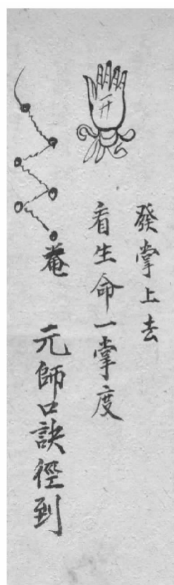 發掌上去
看生命一掌度
菴 元師口訣徑到